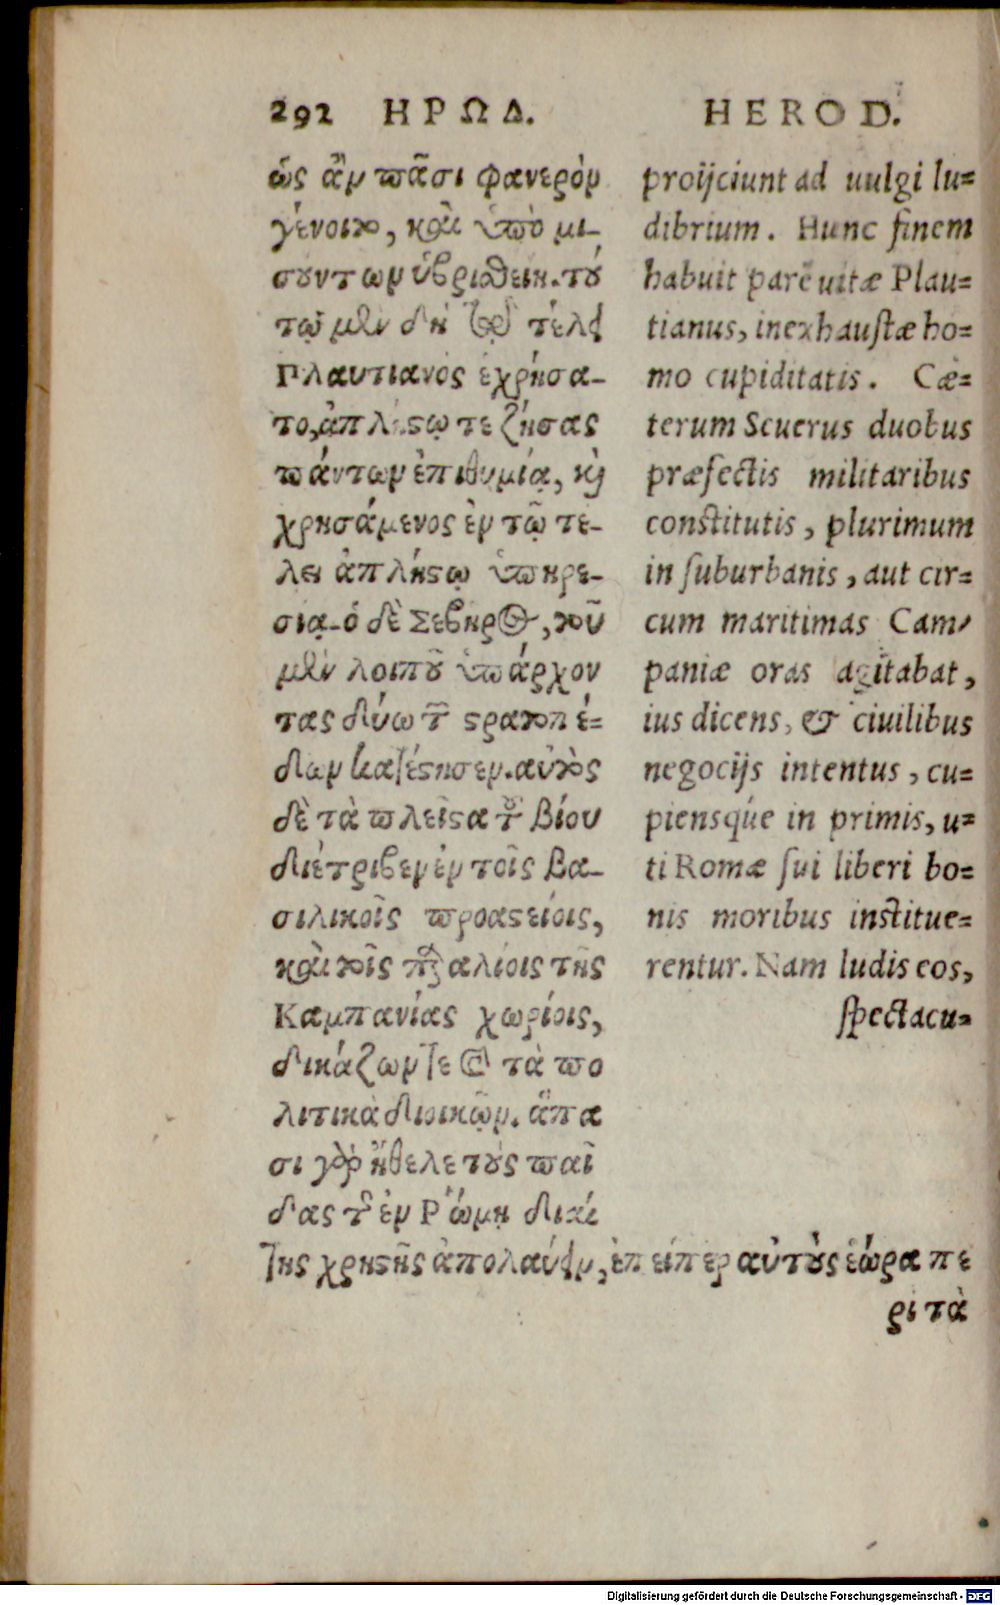 292 ΗΡΩΔ.
ὡς ἂν πᾶσι φανερὸν
γένοιτο, καὶ ὑπὸ μι-
σούντων ὑβρισθείη. τού
τῳ μὲν δὴ τῷ τέλει
Πλαυτιανὸς ἐχρήσα-
το, ἀπλήστῳ τε ζήσας
πάντων ἐπιθυμίᾳ, καὶ
χρησάμενος ἐν τῷ τέ-
λει ἀπλήστῳ ὑπηρε-
σίᾳ. ὁ δὲ Σεβῆρος, τοῦ
μὲν λοιποῦ ὑπάρχον
τας δύω τῶν στρατοπέ=
δων κατέστησεν. αὐτὸς
δὲ τὰ πλεῖστα τοῦ βίου
διέτριβεν ἐν τοῖς βα-
σιλικοῖς προαστείοις,
καὶ τοῖς παραλίοις τῆς
Καμπανίας χωρίοις,
δικάζων τε καὶ τὰ πο
λιτικὰ διοικῶν. ἅπα
σι γὰρ ἤθελε τοὺς παῖ
δας τῆς ἐν Ῥώμῃ διαί
της χρηστῆς ἀπολαύειν, ἐπείπερ αὐτοὺς ἑώρα πε
ρὶ τὰ
HEROD.
proijciunt ad uulgi lu=
dibrium. Hunc finem
habuit parē uitæ Plau=
tianus, inexhaustæ ho=
mo cupiditatis. Cæ=
terum Seuerus duobus
præfectis militaribus
constitutis, plurimum
in suburbanis, aut cir=
cum maritimas Cam=
paniæ oras agitabat,
ius dicens, & ciuilibus
negocijs intentus, cu=
piensq́ue in primis, u=
ti Romæ sui liberi bo=
nis moribus institue=
rentur. Nam ludis eos,
spectacu=
Digitalisierung gefördert durch die Deutsche Forschungsgemeinschaft - DFG